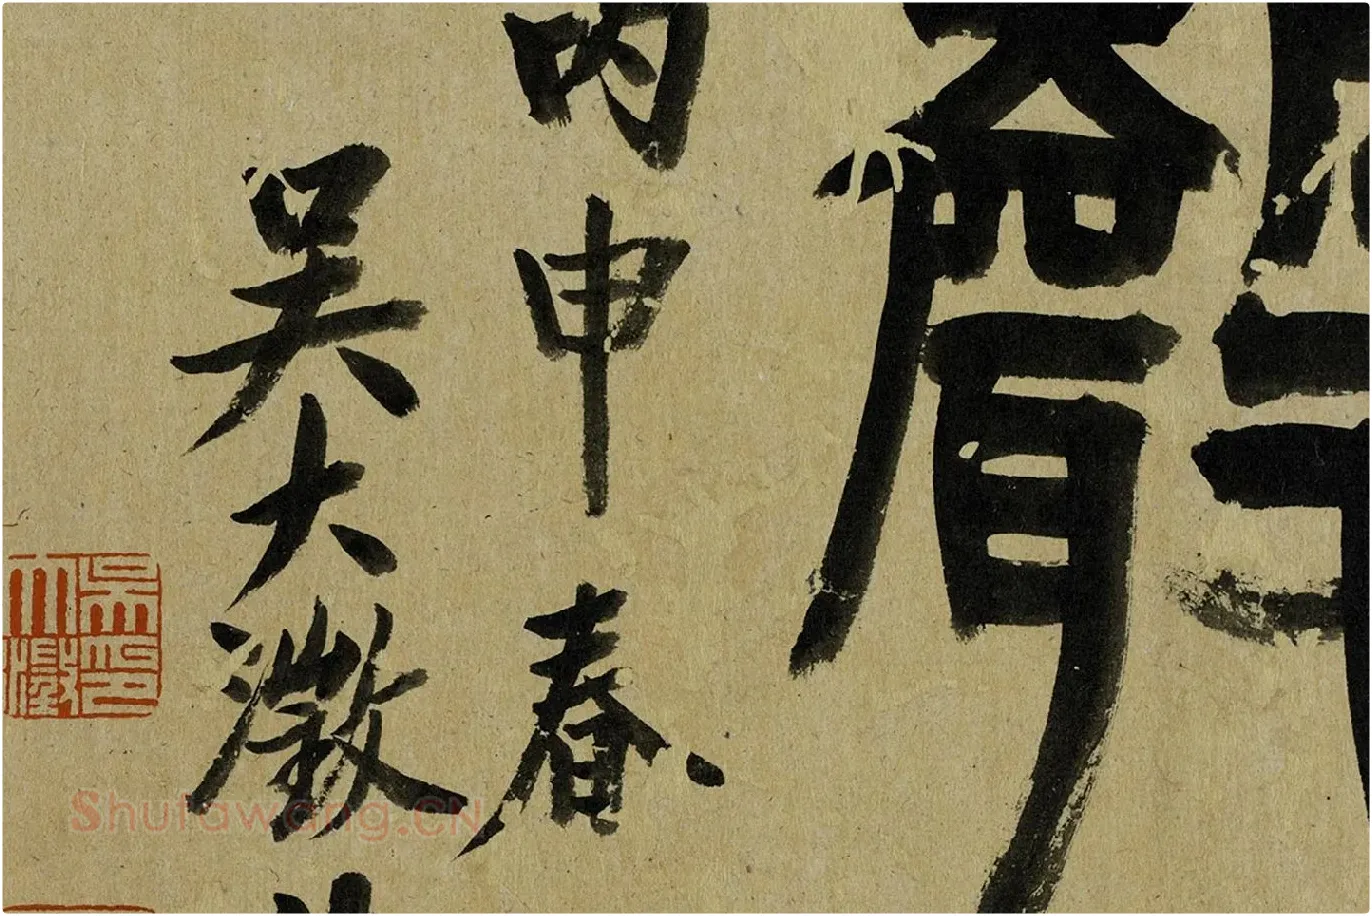 丙申春
吳大澂
吳印大澂
Shufawang.CN